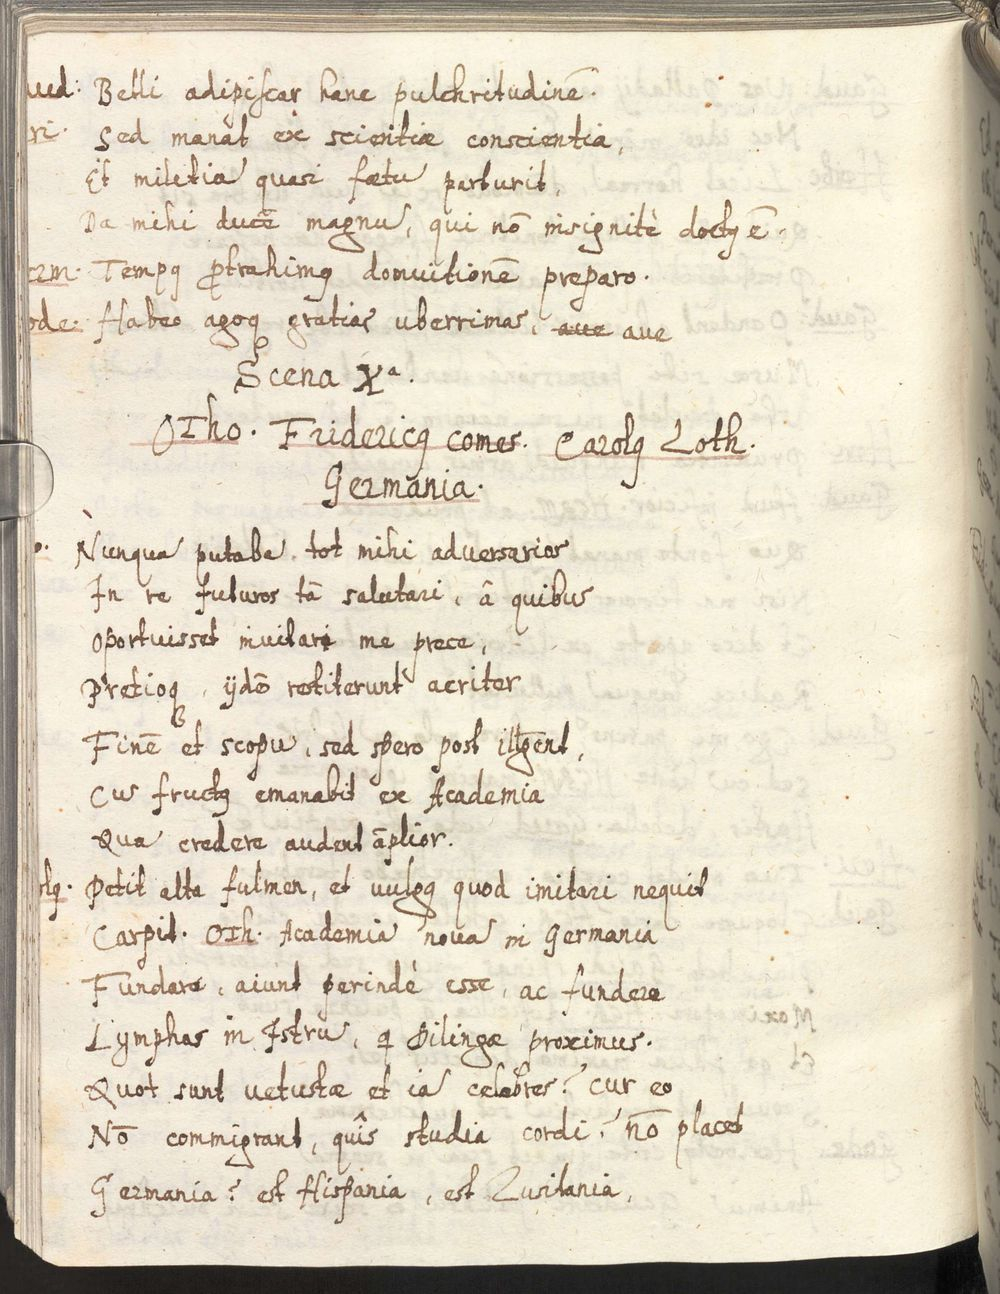 ued: Belli adipiscar hanc pulchritudinē.
ri. Sed manat ex scientiæ conscientia,
Et miletia quasi fœtu parturit,
Da mihi ducē magnu, qui nō insignitè doctꝰ ē.
erm. Tempꝰ ꝓtrahimꝰ domuitionē preparo.
ode: Habeo agoq gratias uberrimas, aue aue
Scena Xª.
Otho. Fridericꝰ comes. Carolꝰ Loth.
Germania.
o. Nunqua putaba tot mihi adversarios
In re futuros tā salutari, â quibus
Oportuisset invitari me prece,
Pretioq, ijdē restiterunt acriter
Finē et scopu, sed spero post
Cu fructꝰ emanabit ex Academia
Qua credere audent āplior.
olꝰ. Petit alta fulmen, et uulgꝰ quod imitari nequit
Carpit. Oth. Academia noua in Germania
Fundare, aiunt perindè esse, ac fundere
Lymphas in Istru, q Dilingæ proximus.
Quot sunt uetustæ et ia celebres? cur eo
Nō commigrant, quîs studia cordi? nō placet
Germania? est Hispania, est Lusitania,